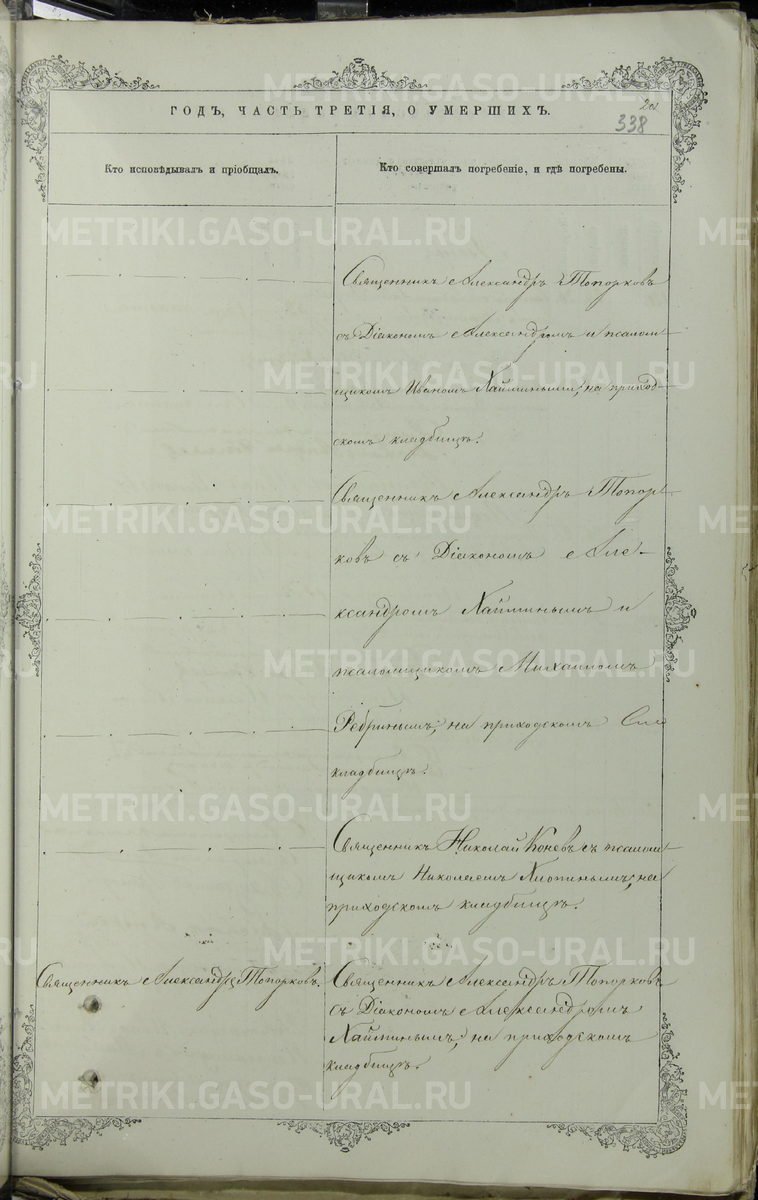 ГОДЪ, ЧАСТЬ ТРЕТІЯ, О УМЕРШИХЪ.
338
Кто исповѣдывалъ и пріобщалъ.
Кто совершалъ погребеніе, и гдѣ погребены.
Священникъ Александръ Топорковъ
съ Діакономъ Александромъ и псалом-
щикомъ Иваномъ Хайминыим; на приход-
скомъ кладбищѣ.
Священникъ Александръ Топор-
ковъ съ Діакономъ Але-
ксандромъ Хайминымъ и
псаломщикомъ Михаиломъ
Ребринымъ; на приходскомъ
кладбищѣ.
Священникъ Николай Коневъ съ псалом-
щикомъ Николаемъ Хлопинымъ; на
приходскомъ кладбищѣ.
Священникъ Александръ Топорковъ.
Священникъ Александръ Топорковъ
съ Діакономъ Александромъ
Хайминымъ; на приходскомъ
кладбищѣ.
METRIKI.GASO-URAL.RU